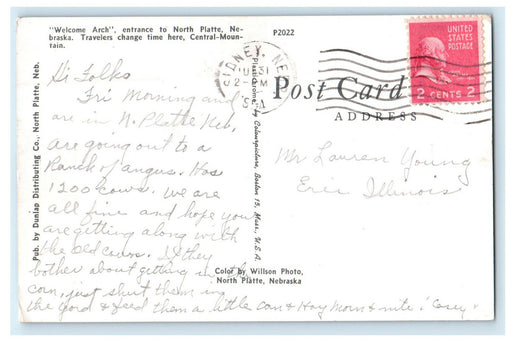 "Welcome Arch", entrance to North Platte, Ne-
braska. Travelers change time here, Central-Moun-
tain.
P2022
SIDNEY, NE
31
2 PM
UNITED
STATES
POSTAGE
2 CENTS 2
Post Card
ADDRESS
Pub. by Dunlap Distributing Co., North Platte, Neb.
Plastichrome, by Colourpicture, Boston 15, Mass., U.S.A.
Hi Folks
Fri Morning and
are in N. Platte Neb,
are going out to a
Ranch of angus. Has
1200 cows. We are
all fine and hope you
are getting along with
the old cows. If they
bother about getting in the
corn, just shut them in
the yard & feed them a little corn & Hay Morn & nite.
Mr Lauren Young
Erie Illinois
Color by Willson Photo,
North Platte, Nebraska